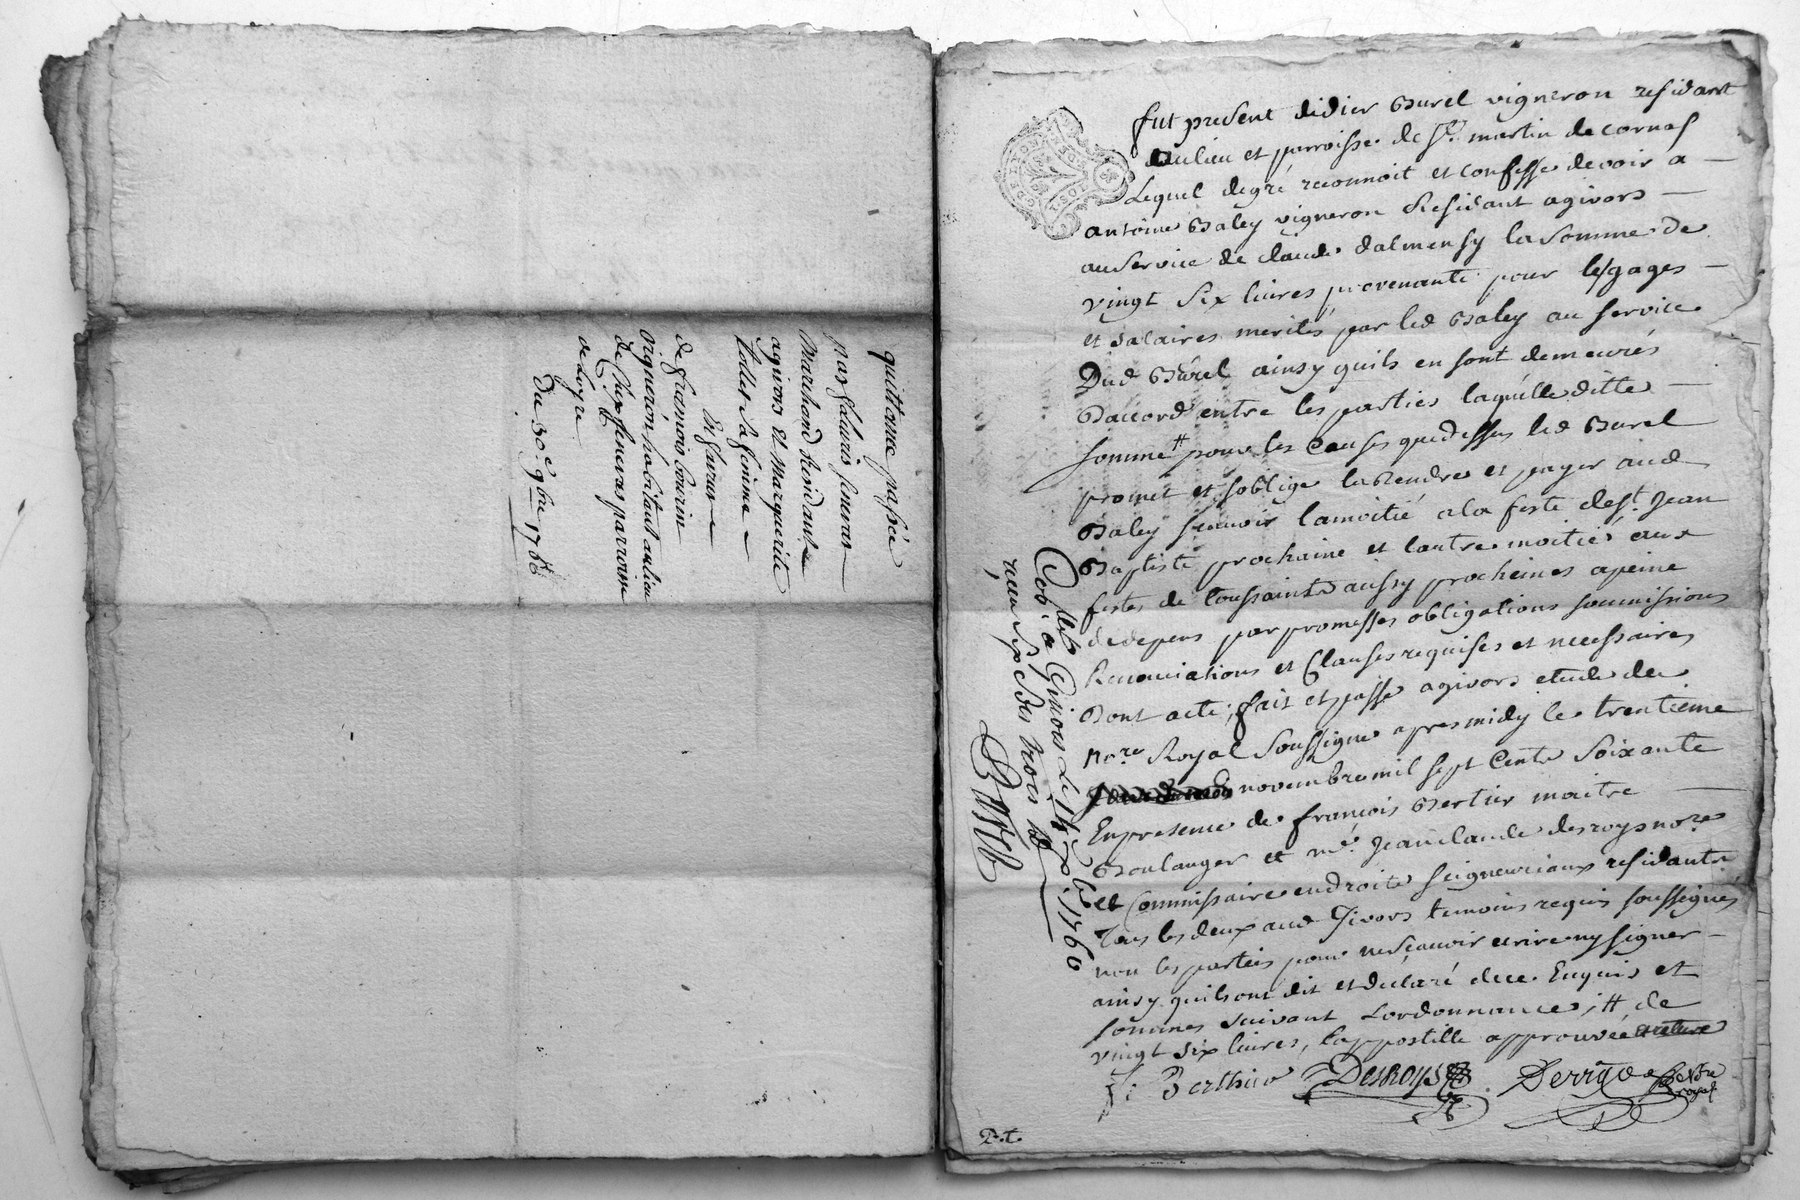 quittance passée
par Lauris feneras
marchand residant
agivors et marguerite
sa femme
En faveur
de francois bourin
vigneron habitant aulieu
de feneras parroisse
deloyre
Du 30e 9bre 1760
fut present didier Burel vigneron residant
aulieu et parroisse de St. martin de cornas
Lequel degré reconnoit et confesse devoir a
antoine Baley vigneron Residant agivors
auservice de claude dalmensy la somme de
vingt six livres provenante pour les gages
et salaires merités par led Baley au service
Dud Burel ainsy quils en sont demeurés
Daccord entre les parties laquelle ditte
somme # pour les causes quedessus led Burel
promet et soblige la Rendre et payer aud
Baley scavoir lamoitié ala feste de St. Jean
Baptiste prochaine et lautre moitié aux
festes de toussaints aussy procheines apeine
dedepens par promesses obligations soumissions
Renonciations et Clauses requises et necessaires
Dont acte, fait et passé agivors etude du
nore Royal soussigné apres midy le trentieme
novembre mil sept Cents soixante
En presence de francois Bertier maitre
Boulanger et me. Jean claude desroys nore
et Commissaire endroits seigneuriaux residants
Tous les deux aud Givors temoins requis soussignés
non les parties pour nescavoir ecrire ny signer
ainsy quils ont dit et declaré de ce Enquis et
sommés suivant Lordonnance, # de
vingt six livres, lappostille approuvée
f. Berthier Desroys
nore royal
Collé a Givors Le 14 Xbre 1760
reçu six sols trois d
P.t.